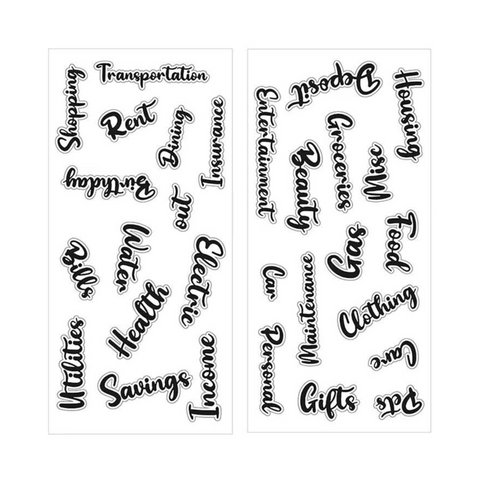 Shopping
Transportation
Rent
Dining
out
Insurance
Birthday
Bills
Water
Electric
Health
Utilities
Savings
Income
Entertainment
Deposit
Housing
Groceries
Beauty
Misc
Gas
Food
Car
Maintenance
Clothing
Personal
Care
Gifts
Pets